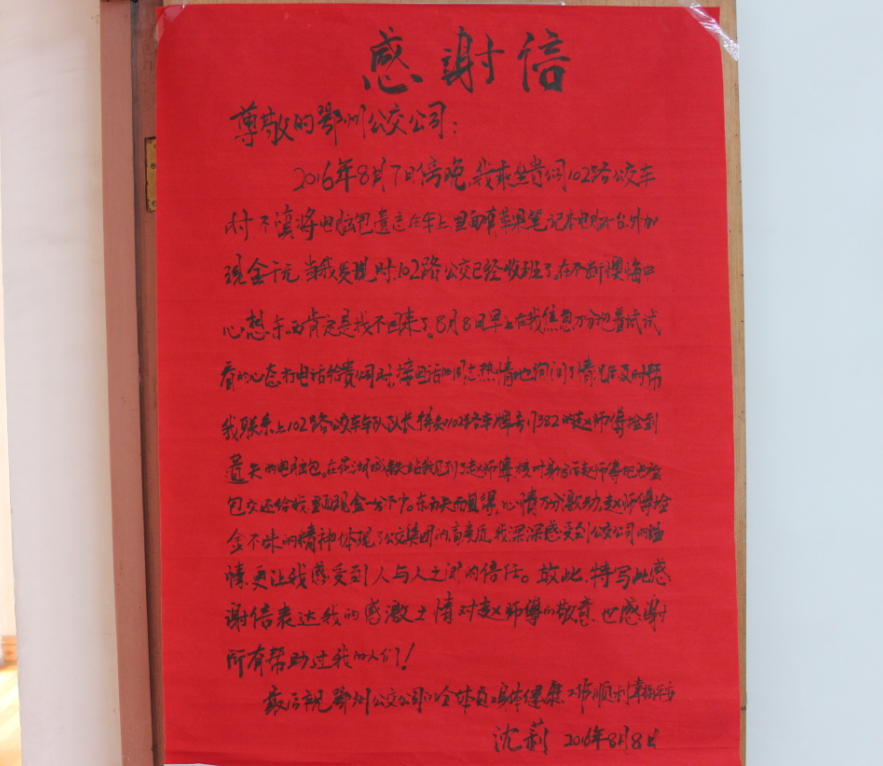 感谢信
尊敬的鄂州公交公司：
2016年8月7日傍晚，我乘坐贵公司102路公交车
时不慎将电脑包遗忘在车上，里面有苹果笔记本电脑一台，外加
现金千元，当我发现时，102路公交已经收班了。在不断懊悔中
心想东西肯定是找不回来了。8月8日早上在我焦急万分抱着试试
看的心态打电话给贵公司时，接电话的同志热情地询问了情况后及时帮
我联系上102路公交车车队队长，得知102路车牌号1382的赵师傅捡到
遗失的电脑包。在花湖城铁站我见到了赵师傅，核对身份后赵师傅把电脑
包交还给我，里面现金一分不少。东西失而复得，心情万分激动，赵师傅拾
金不昧的精神体现了公交集团的高素质，我深深感受到公交公司的温
情，更让我感受到人与人之间的信任。故此，特写此感
谢信表达我的感激之情对赵师傅的敬意，也感谢
所有帮助过我的人们！
最后祝鄂州公交公司的全体员工身体健康，工作顺利，幸福平安
沈莉 2016年8月8日